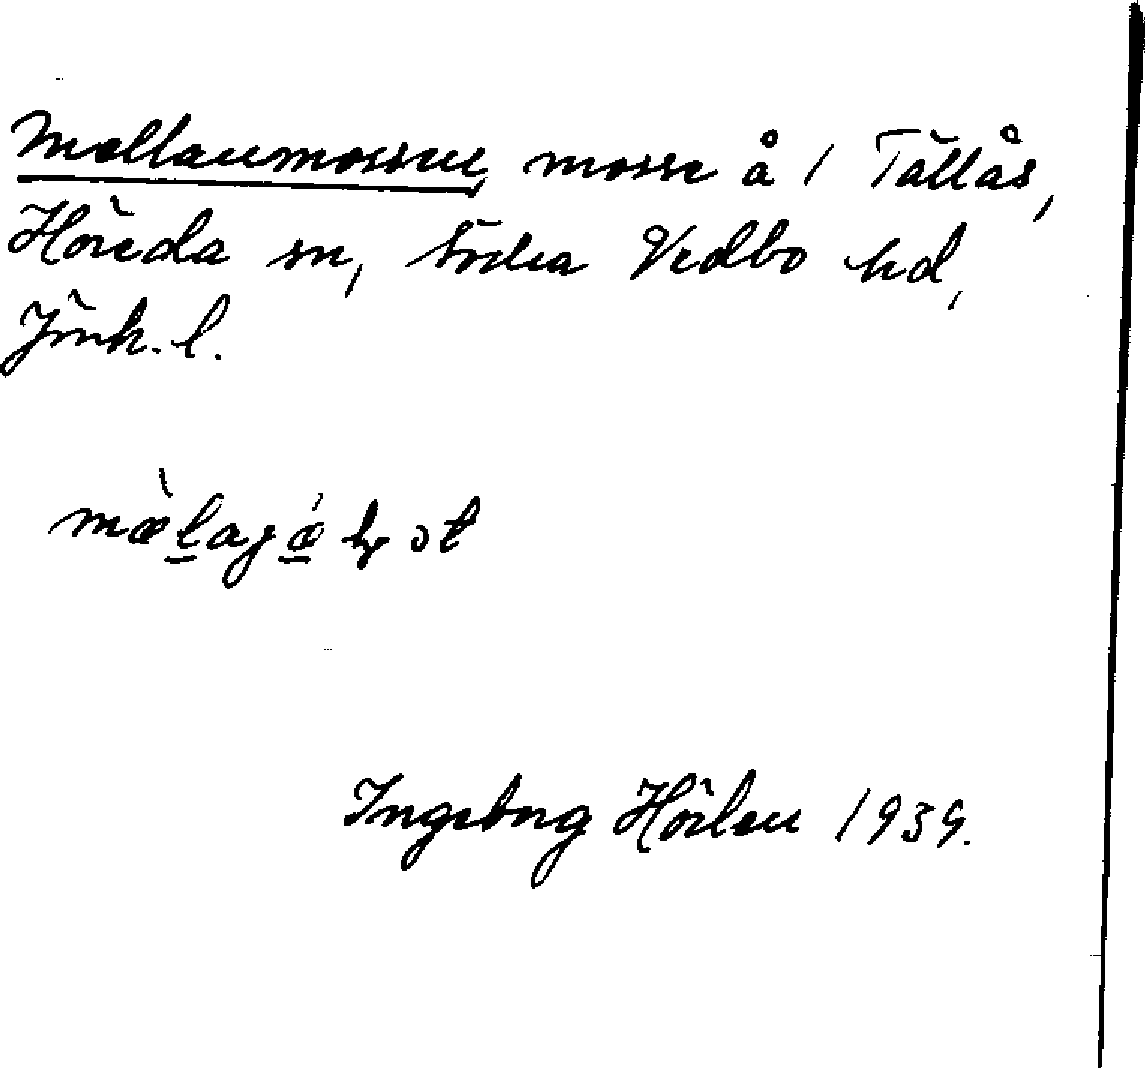 Mellanmossen, mosse å 1 Tällås,
Höreda sn, Södra Vedbo hd,
Jönk. l.
Ingeborg Hörlen 1939.